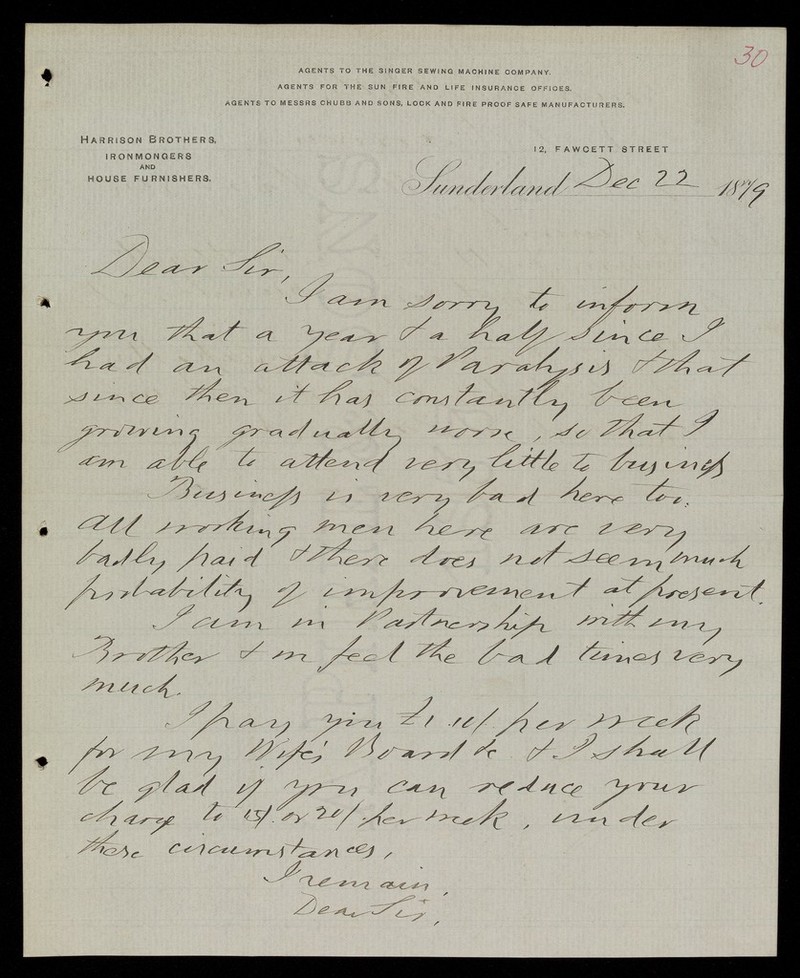 30
AGENTS TO THE SINGER SEWING MACHINE COMPANY.
AGENTS FOR THE SUN FIRE AND LIFE INSURANCE OFFICES.
AGENTS TO MESSRS CHUBB AND SONS, LOCK AND FIRE PROOF SAFE MANUFACTURERS.
HARRISON BROTHERS,
IRONMONGERS
AND
HOUSE FURNISHERS.
12, FAWCETT STREET
Sunderland Dec 22 1879
Dear Sir,
I am sorry to inform
you that a year & a half since I
had an attack of Paralysis & that
since then it has constantly been
growing gradually worse, so that I
am able to attend very little to business
Business is very bad here too.
All working men here are very
badly paid & there does not seem much
probability of improvement at present.
I am in Partnership with my
Brother & we feel the bad times very
much.
I pay you £1. per week
for my Wife's Board &c & I shall
be glad if you can reduce your
charge to 15/ or 20/ per week, under
these circumstances,
I remain,
Dear Sir,